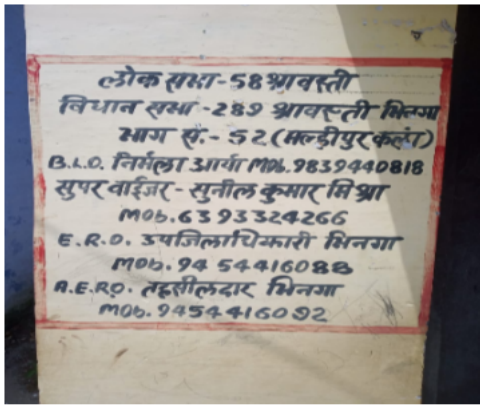 लोक सभा-58 श्रावस्ती
विधान सभा-289 श्रावस्ती भिनगा
भाग सं.-52 (मल्हीपुर कलां)
B.L.O. निर्मला आर्या Mob. 9839440818
सुपर वाईजर-सुनील कुमार मिश्रा
Mob. 6393324266
E.R.O. उपजिलाधिकारी भिनगा
Mob. 9454416088
A.E.R.O. तहसीलदार भिनगा
Mob. 9454416092